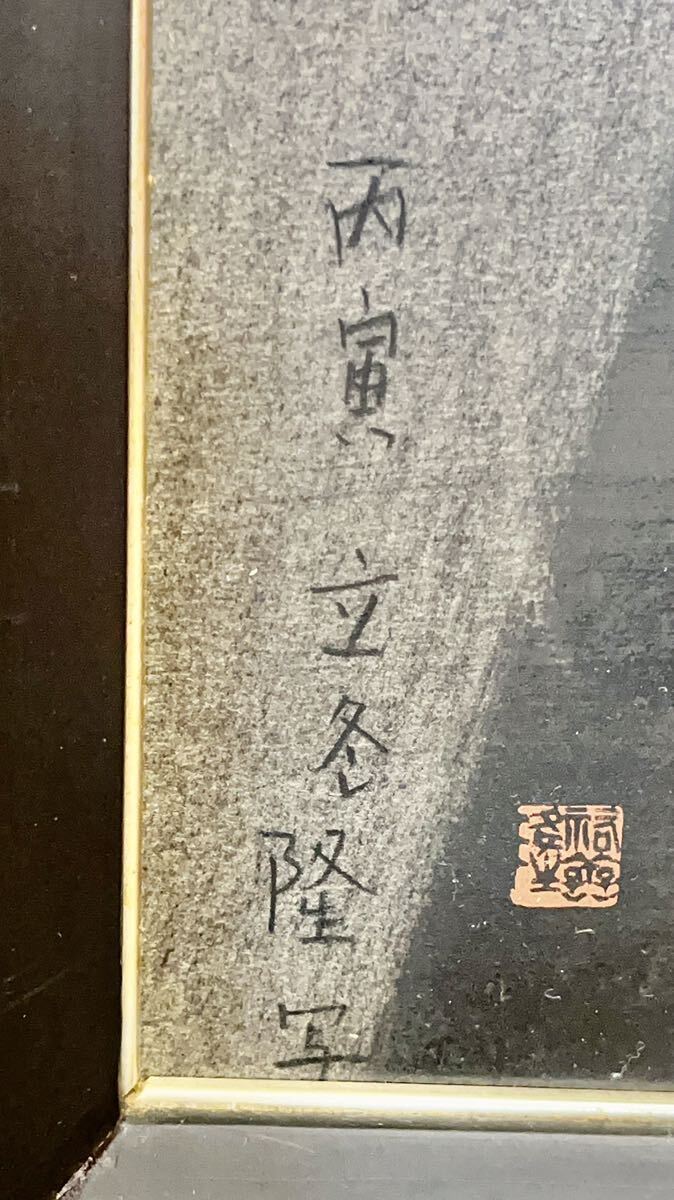 丙寅 立冬 隆写